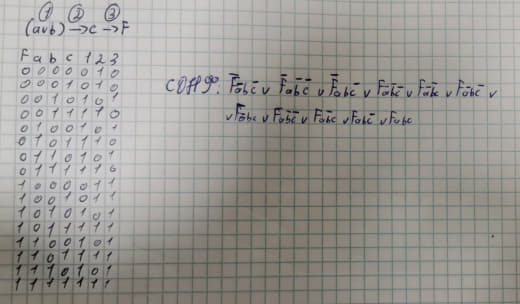 ① ② ③
(a∨b) → c → F
F a b c 1 2 3
0 0 0 0 0 1 0
0 0 0 1 0 1 0
0 0 1 0 1 0 1
0 0 1 1 1 1 0
0 1 0 0 1 0 1
0 1 0 1 1 1 0
0 1 1 0 1 0 1
0 1 1 1 1 1 0
1 0 0 0 0 1 1
1 0 0 1 0 1 1
1 0 1 0 1 0 1
1 0 1 1 1 1 1
1 1 0 0 1 0 1
1 1 0 1 1 1 1
1 1 1 0 1 0 1
1 1 1 1 1 1 1
СДНФ: F̄āb̅c̄ ∨ F̄ab̄c̄ ∨ F̄abc̄ ∨ Fāb̄c̄ ∨ Fāb̄c ∨ Fābc̄ ∨
∨ Fābc ∨ Fab̄c̄ ∨ Fab̄c ∨ Fabc̄ ∨ Fabc